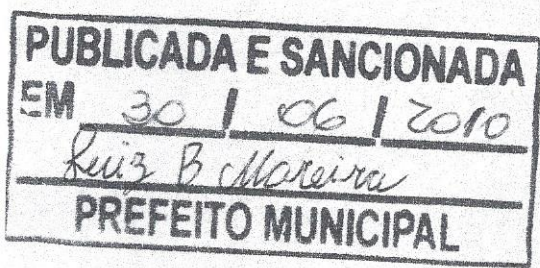 PUBLICADA E SANCIONADA
EM 30 / 06 / 2010
Luiz B Moreira
PREFEITO MUNICIPAL